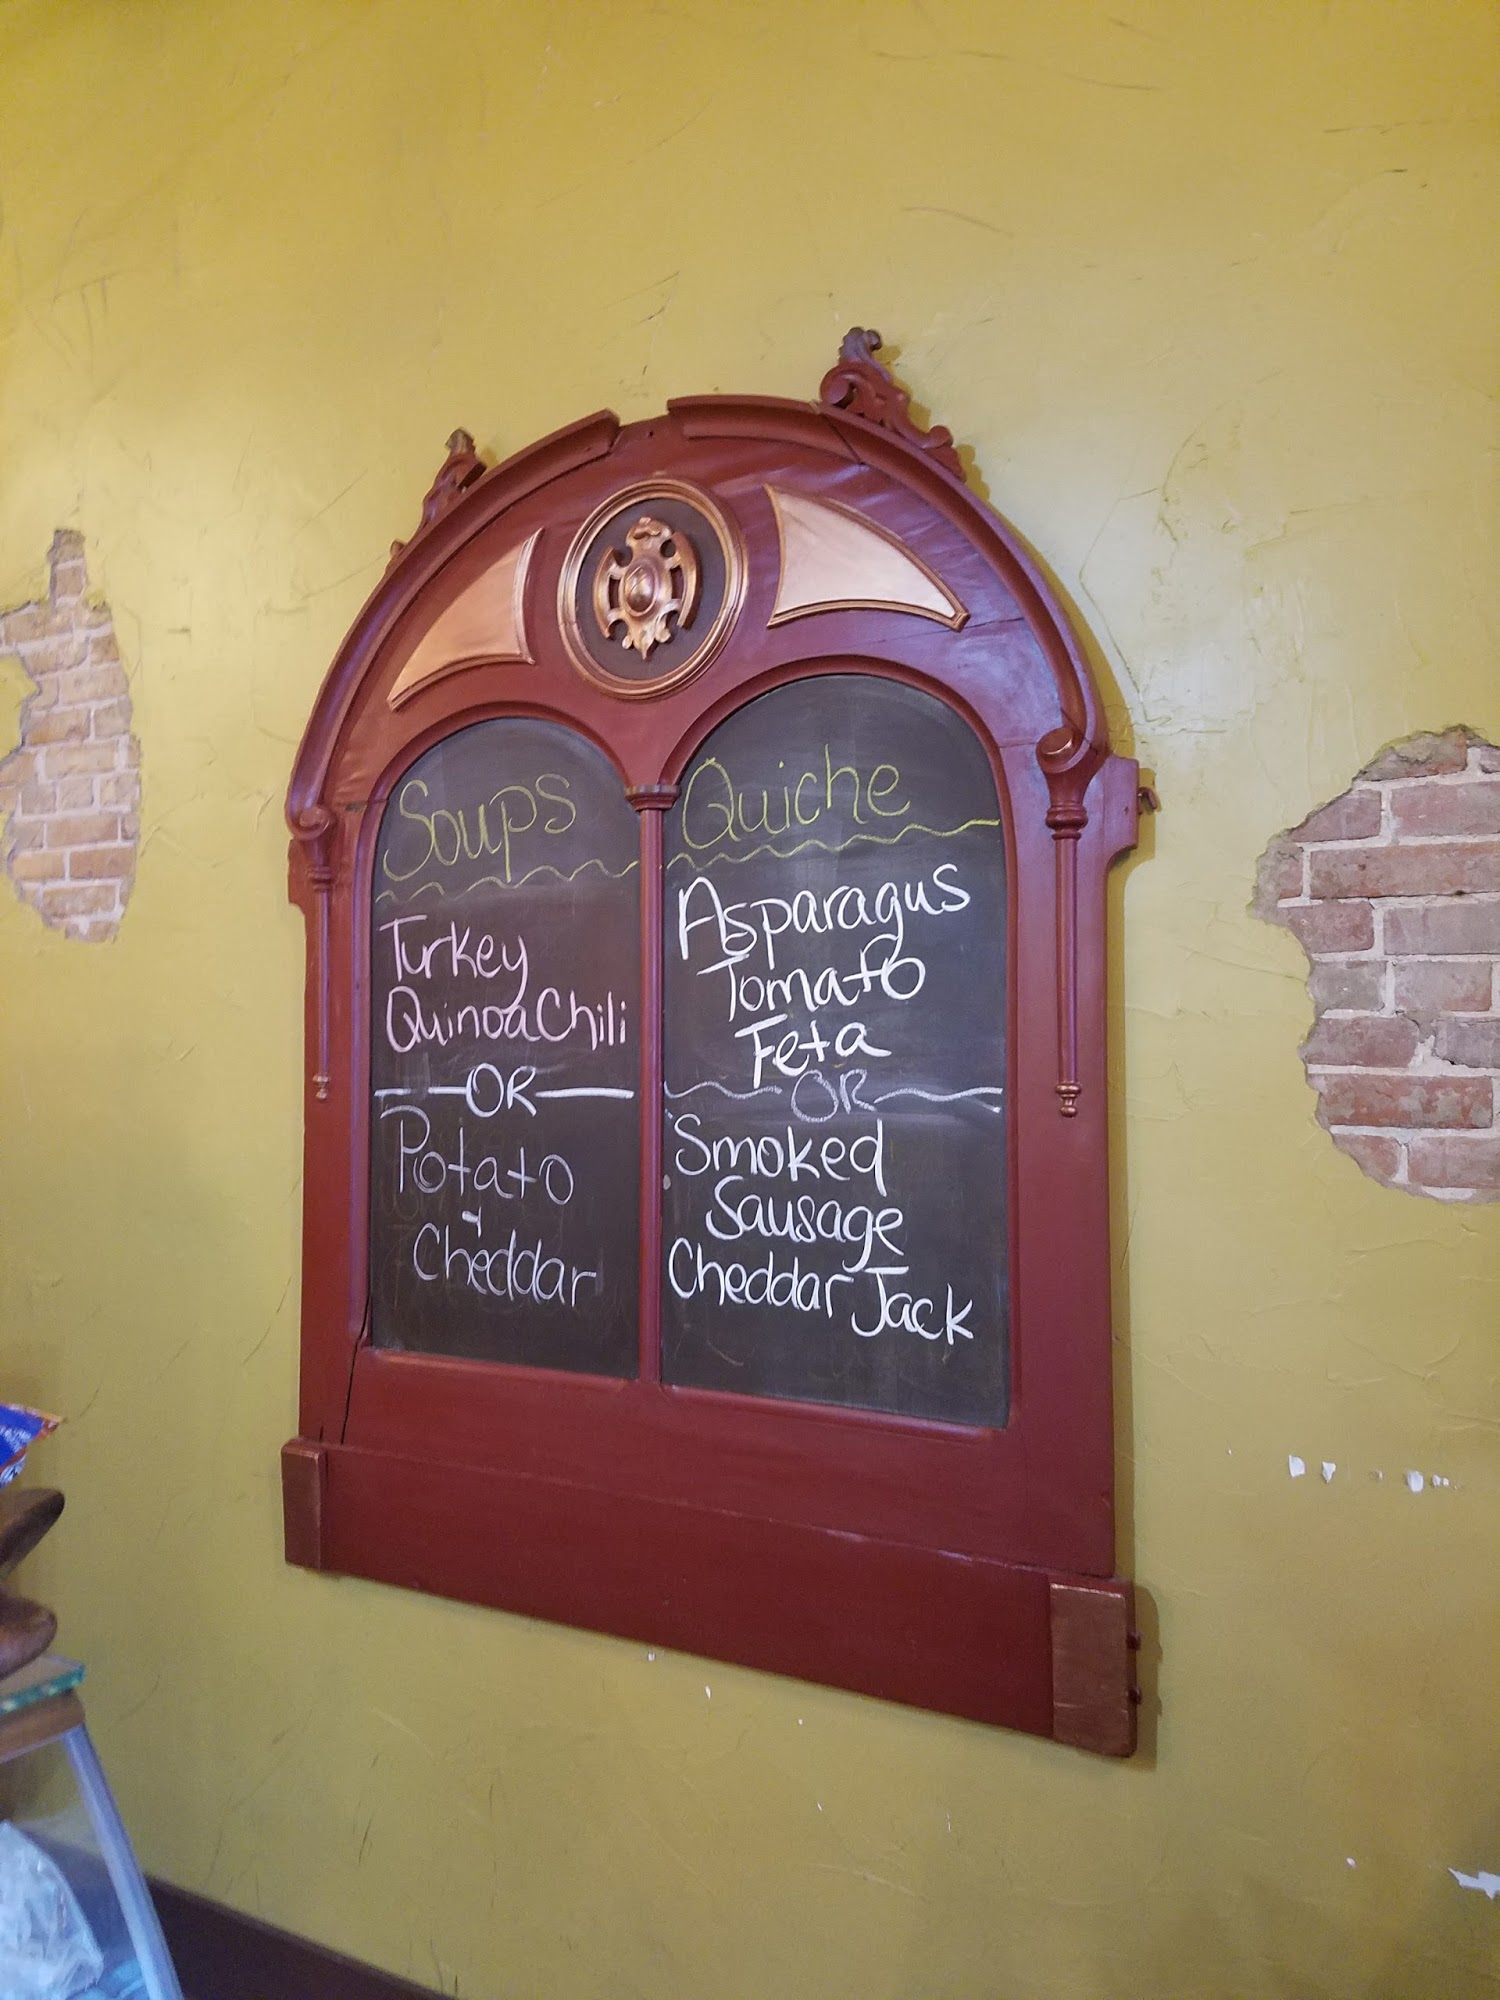 Soups
Turkey
Quinoa Chili
OR
Potato
+
Cheddar
Quiche
Asparagus
Tomato
Feta
OR
Smoked
Sausage
Cheddar Jack